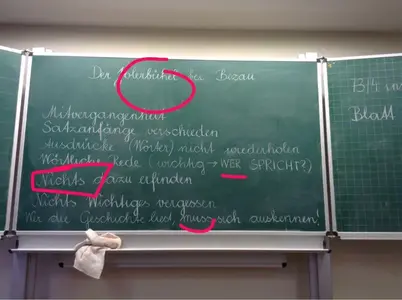 Der Jolerbüchel bei Bizau
Mitvergangenheit
Satzanfänge verschieden
Ausdrücke (Wörter) nicht wiederholen
Wörtliche Rede (wichtig → WER SPRICHT?)
Nichts dazu erfinden
Nichts Wichtiges vergessen
Wer die Geschichte liest, muss sich auskennen!
Blatt